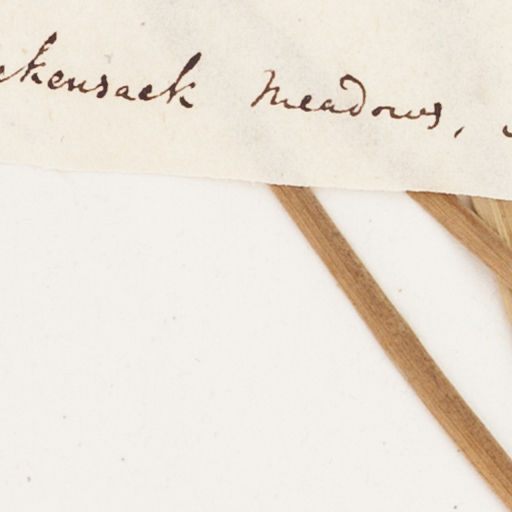 ckensack Meadows,